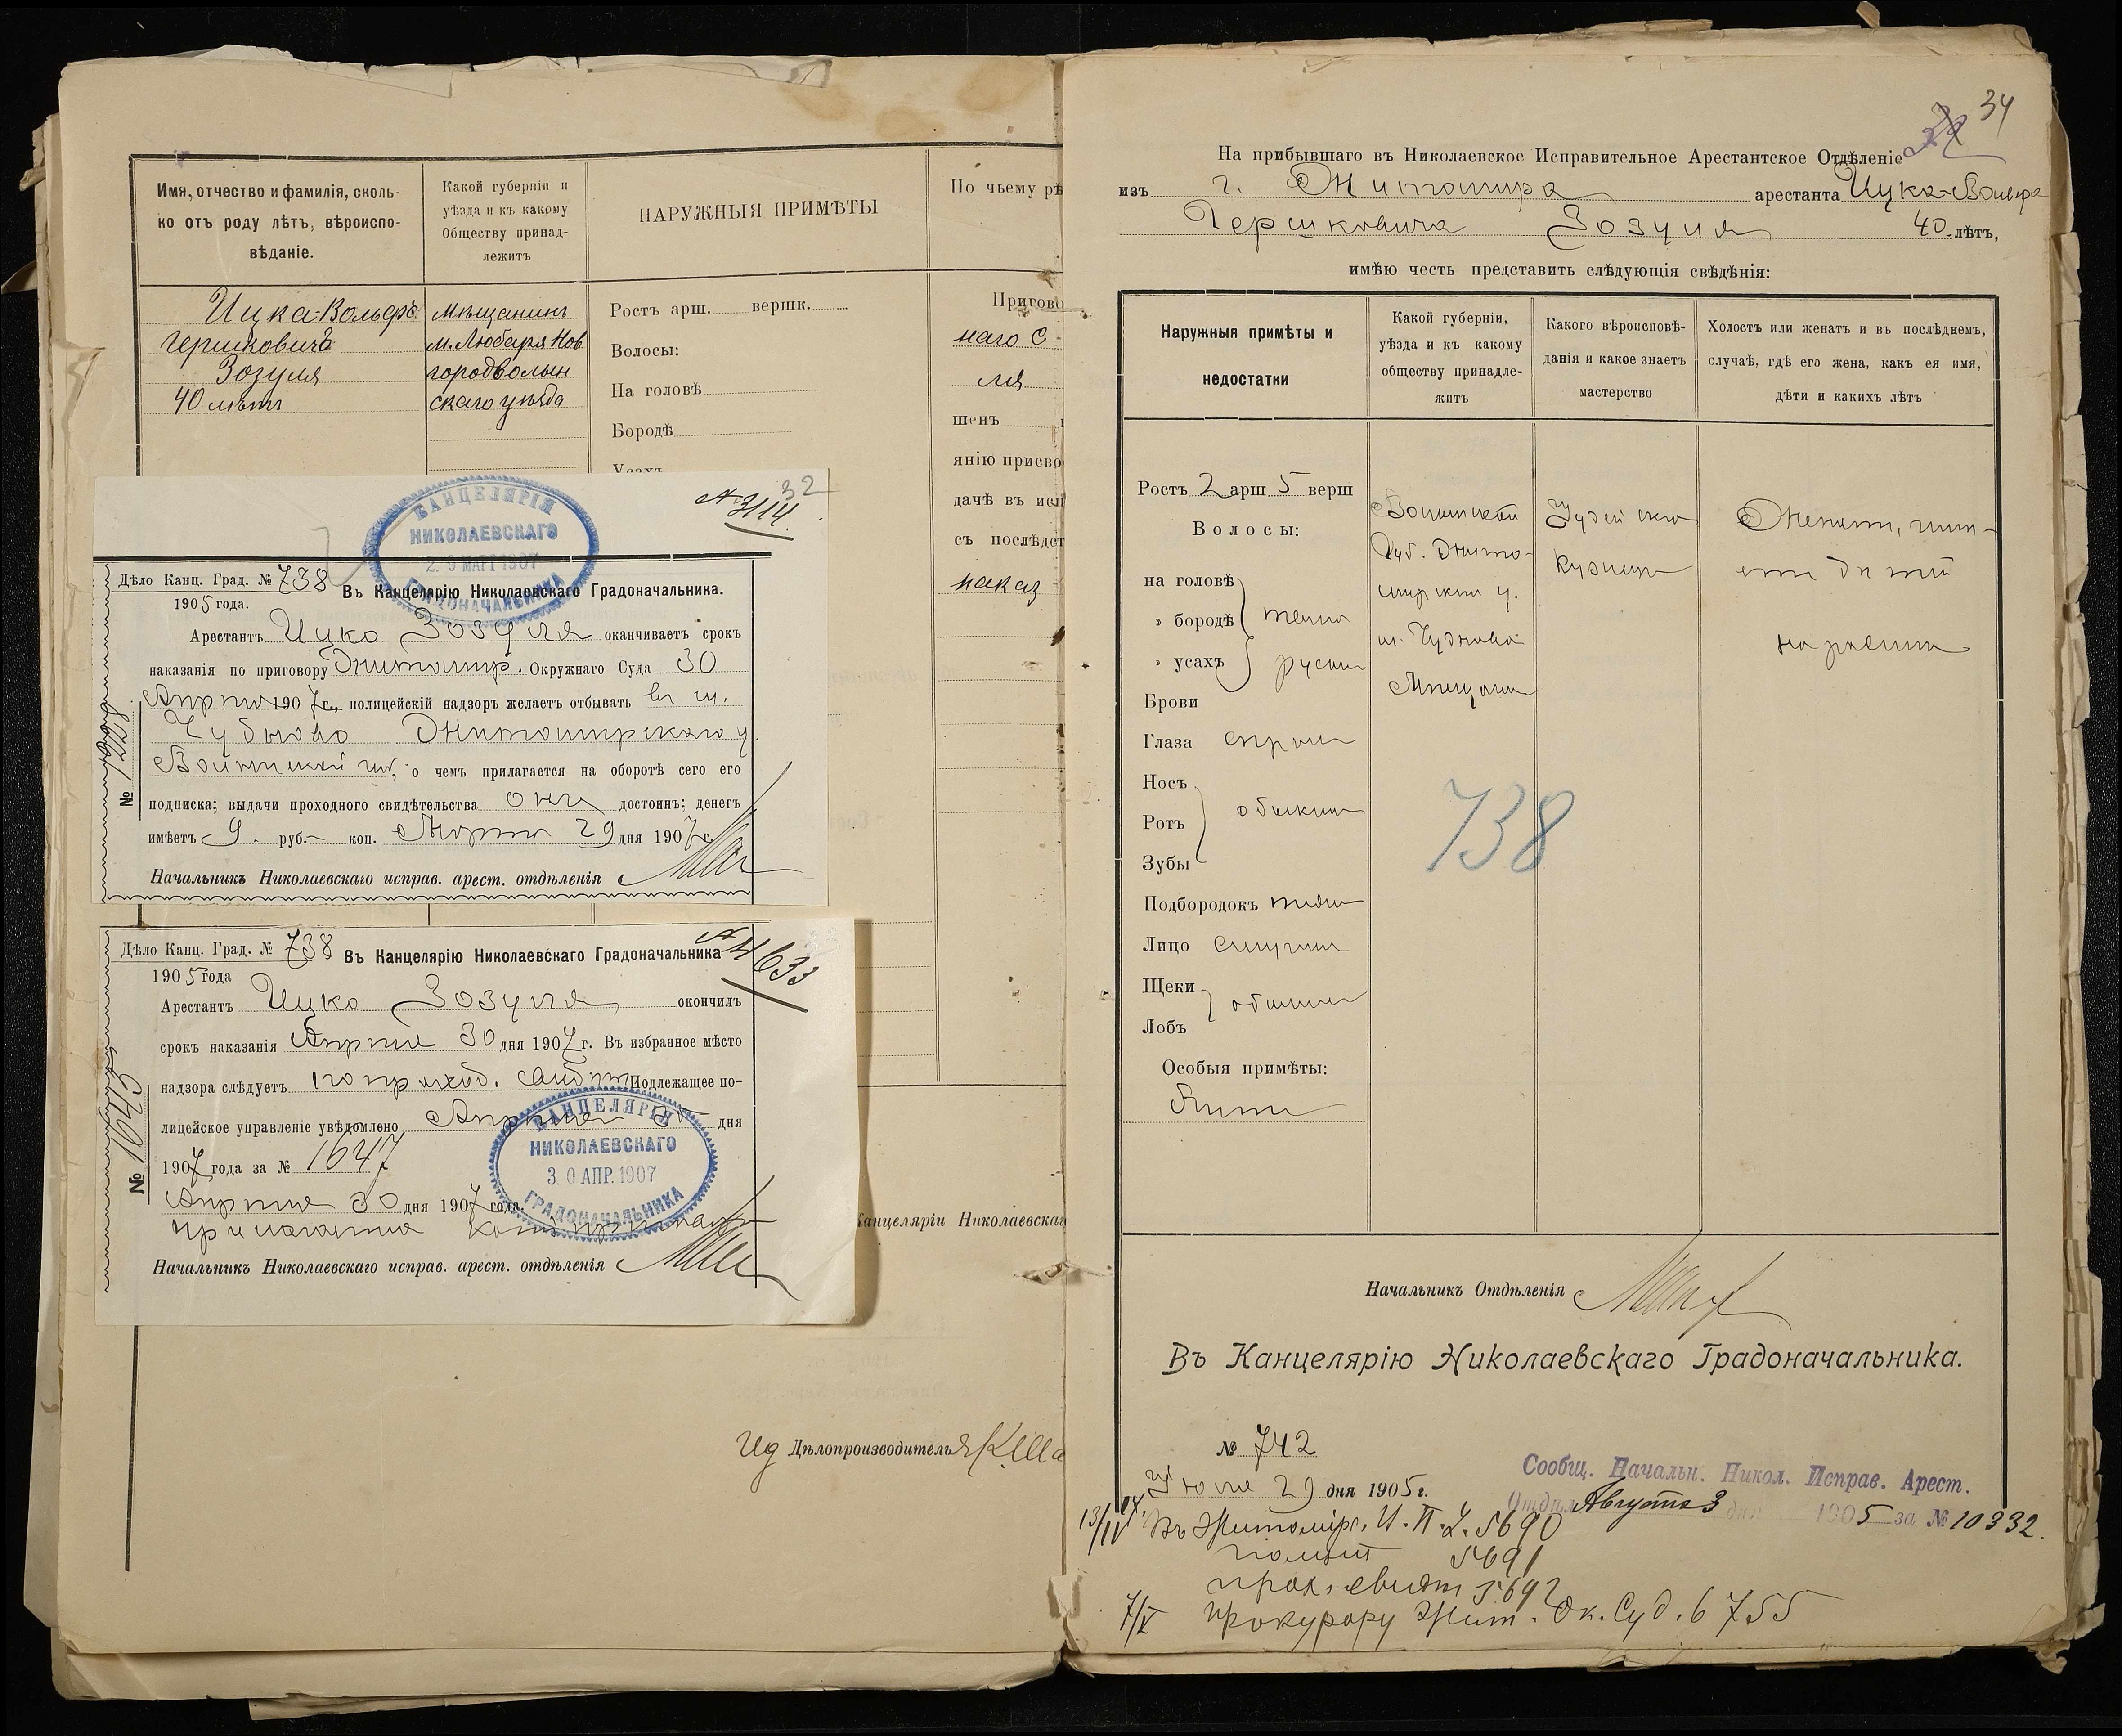 Имя, отчество и фамилія, сколь-
ко отъ роду лѣтъ, вѣроиспо-
вѣданіе.
Какой губерніи и
уѣзда и къ какому
Обществу принад-
лежитъ
НАРУЖНЫЯ ПРИМѢТЫ
По чьему рѣ
Ицка-Вольфъ
Гершковичъ
Зозуля
40 лѣтъ
Мѣщанинъ
м. Любаря Нов
городволын
скаго уѣзда
Ростъ арш. вершк.
Волосы:
На головѣ
Бородѣ
Усахъ
Пригово
наго С
ля
шенъ
янію присво
дачѣ въ исп
съ послѣдст
наказ
32
№ 3114
КАНЦЕЛЯРІЯ
НИКОЛАЕВСКАГО
2. 9 МАРТ 1907
ГРАДОНАЧАЛЬНИКА
Дѣло Канц. Град. № 738
1905 года.
Въ Канцелярію Николаевскаго Градоначальника.
Арестантъ Ицко Зозуля оканчиваетъ срокъ
наказанія по приговору Житомир. Окружнаго Суда 30
Апрѣля 1907 г., полицейскій надзоръ желаетъ отбывать въ м.
Чудново Житомирскаго у.
Волынской губ., о чемъ прилагается на оборотѣ сего его
подписка; выдачи проходного свидѣтельства онъ достоинъ; денегъ
имѣетъ 9 руб. – коп. Марта 29 дня 1907 г.
Начальникъ Николаевскаго исправ. арест. отдѣленія
№
Дѣло Канц. Град. № 738
1905 года
Въ Канцелярію Николаевскаго Градоначальника
№ 4633
Арестантъ Ицко Зозуля окончилъ
срокъ наказанія Апрѣля 30 дня 1907 г. Въ избранное мѣсто
надзора слѣдуетъ по проход. свидѣт. Подлежащее по-
лицейское управленіе увѣдомлено Апрѣля 30 дня
1907 года за № 1647
Апрѣля 30 дня 1907 года.
КАНЦЕЛЯРІЯ
НИКОЛАЕВСКАГО
3. 0 АПР. 1907
ГРАДОНАЧАЛЬНИКА
Начальникъ Николаевскаго исправ. арест. отдѣленія
№ 1646
Канцеляріи Николаевскаг
Ид Дѣлопроизводителя
34
На прибывшаго въ Николаевское Исправительное Арестантское Отдѣленіе
изъ г. Житомира арестанта Ицка-Вольфа
Гершковича Зозуля 40 лѣтъ,
имѣю честь представить слѣдующія свѣдѣнія:
Наружныя примѣты и
недостатки
Какой губерніи,
уѣзда и къ какому
обществу принадле-
житъ
Какого вѣроисповѣ-
данія и какое знаетъ
мастерство
Холостъ или женатъ и въ послѣднемъ,
случаѣ, гдѣ его жена, какъ ея имя,
дѣти и какихъ лѣтъ
Ростъ 2 арш 5 верш
Волосы:
на головѣ
" бородѣ темно
" усахъ русые
Брови
Глаза сѣрые
Носъ
Ротъ обыкнов
Зубы
Подбородокъ
Лицо смуглое
Щеки
Лобъ
Особыя примѣты:
Волынской
Губ. Жито-
мирскаго у.
м. Чуднова
Мѣщанинъ
Іудейскаго
Кузнецъ
Женатъ, имѣ-
етъ дѣтей
на родинѣ
738
Начальникъ Отдѣленія
Въ Канцелярію Николаевскаго Градоначальника.
№ 742
Іюля 29 дня 1905 г.
Сообщ. Начальн. Никол. Исправ. Арест.
Отдѣл Августа 3 дня 1905 за № 10332.
13/IV 07. Въ Житомірс. У. П. У. 5690
5691
прох. свидѣт 5692
7/V прокурору Жит. Ок. Суд. 6755